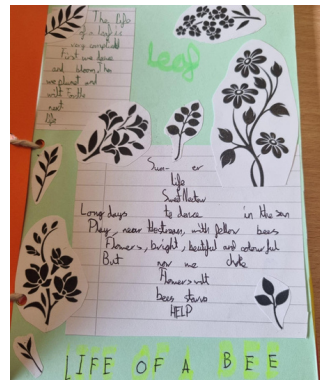 The life
of a leaf is
very complicated
First we leave
and bloom, the
we planet and
wilt
next
life
Leaf
Sum- er
Life
Sweet Nectar
Long days to dance in the sun
Play, near, with fellow bees
Flowers, bright, beautiful and colourful
But now we
Flowers wilt
bees starve
HELP
LIFE OF A BEE